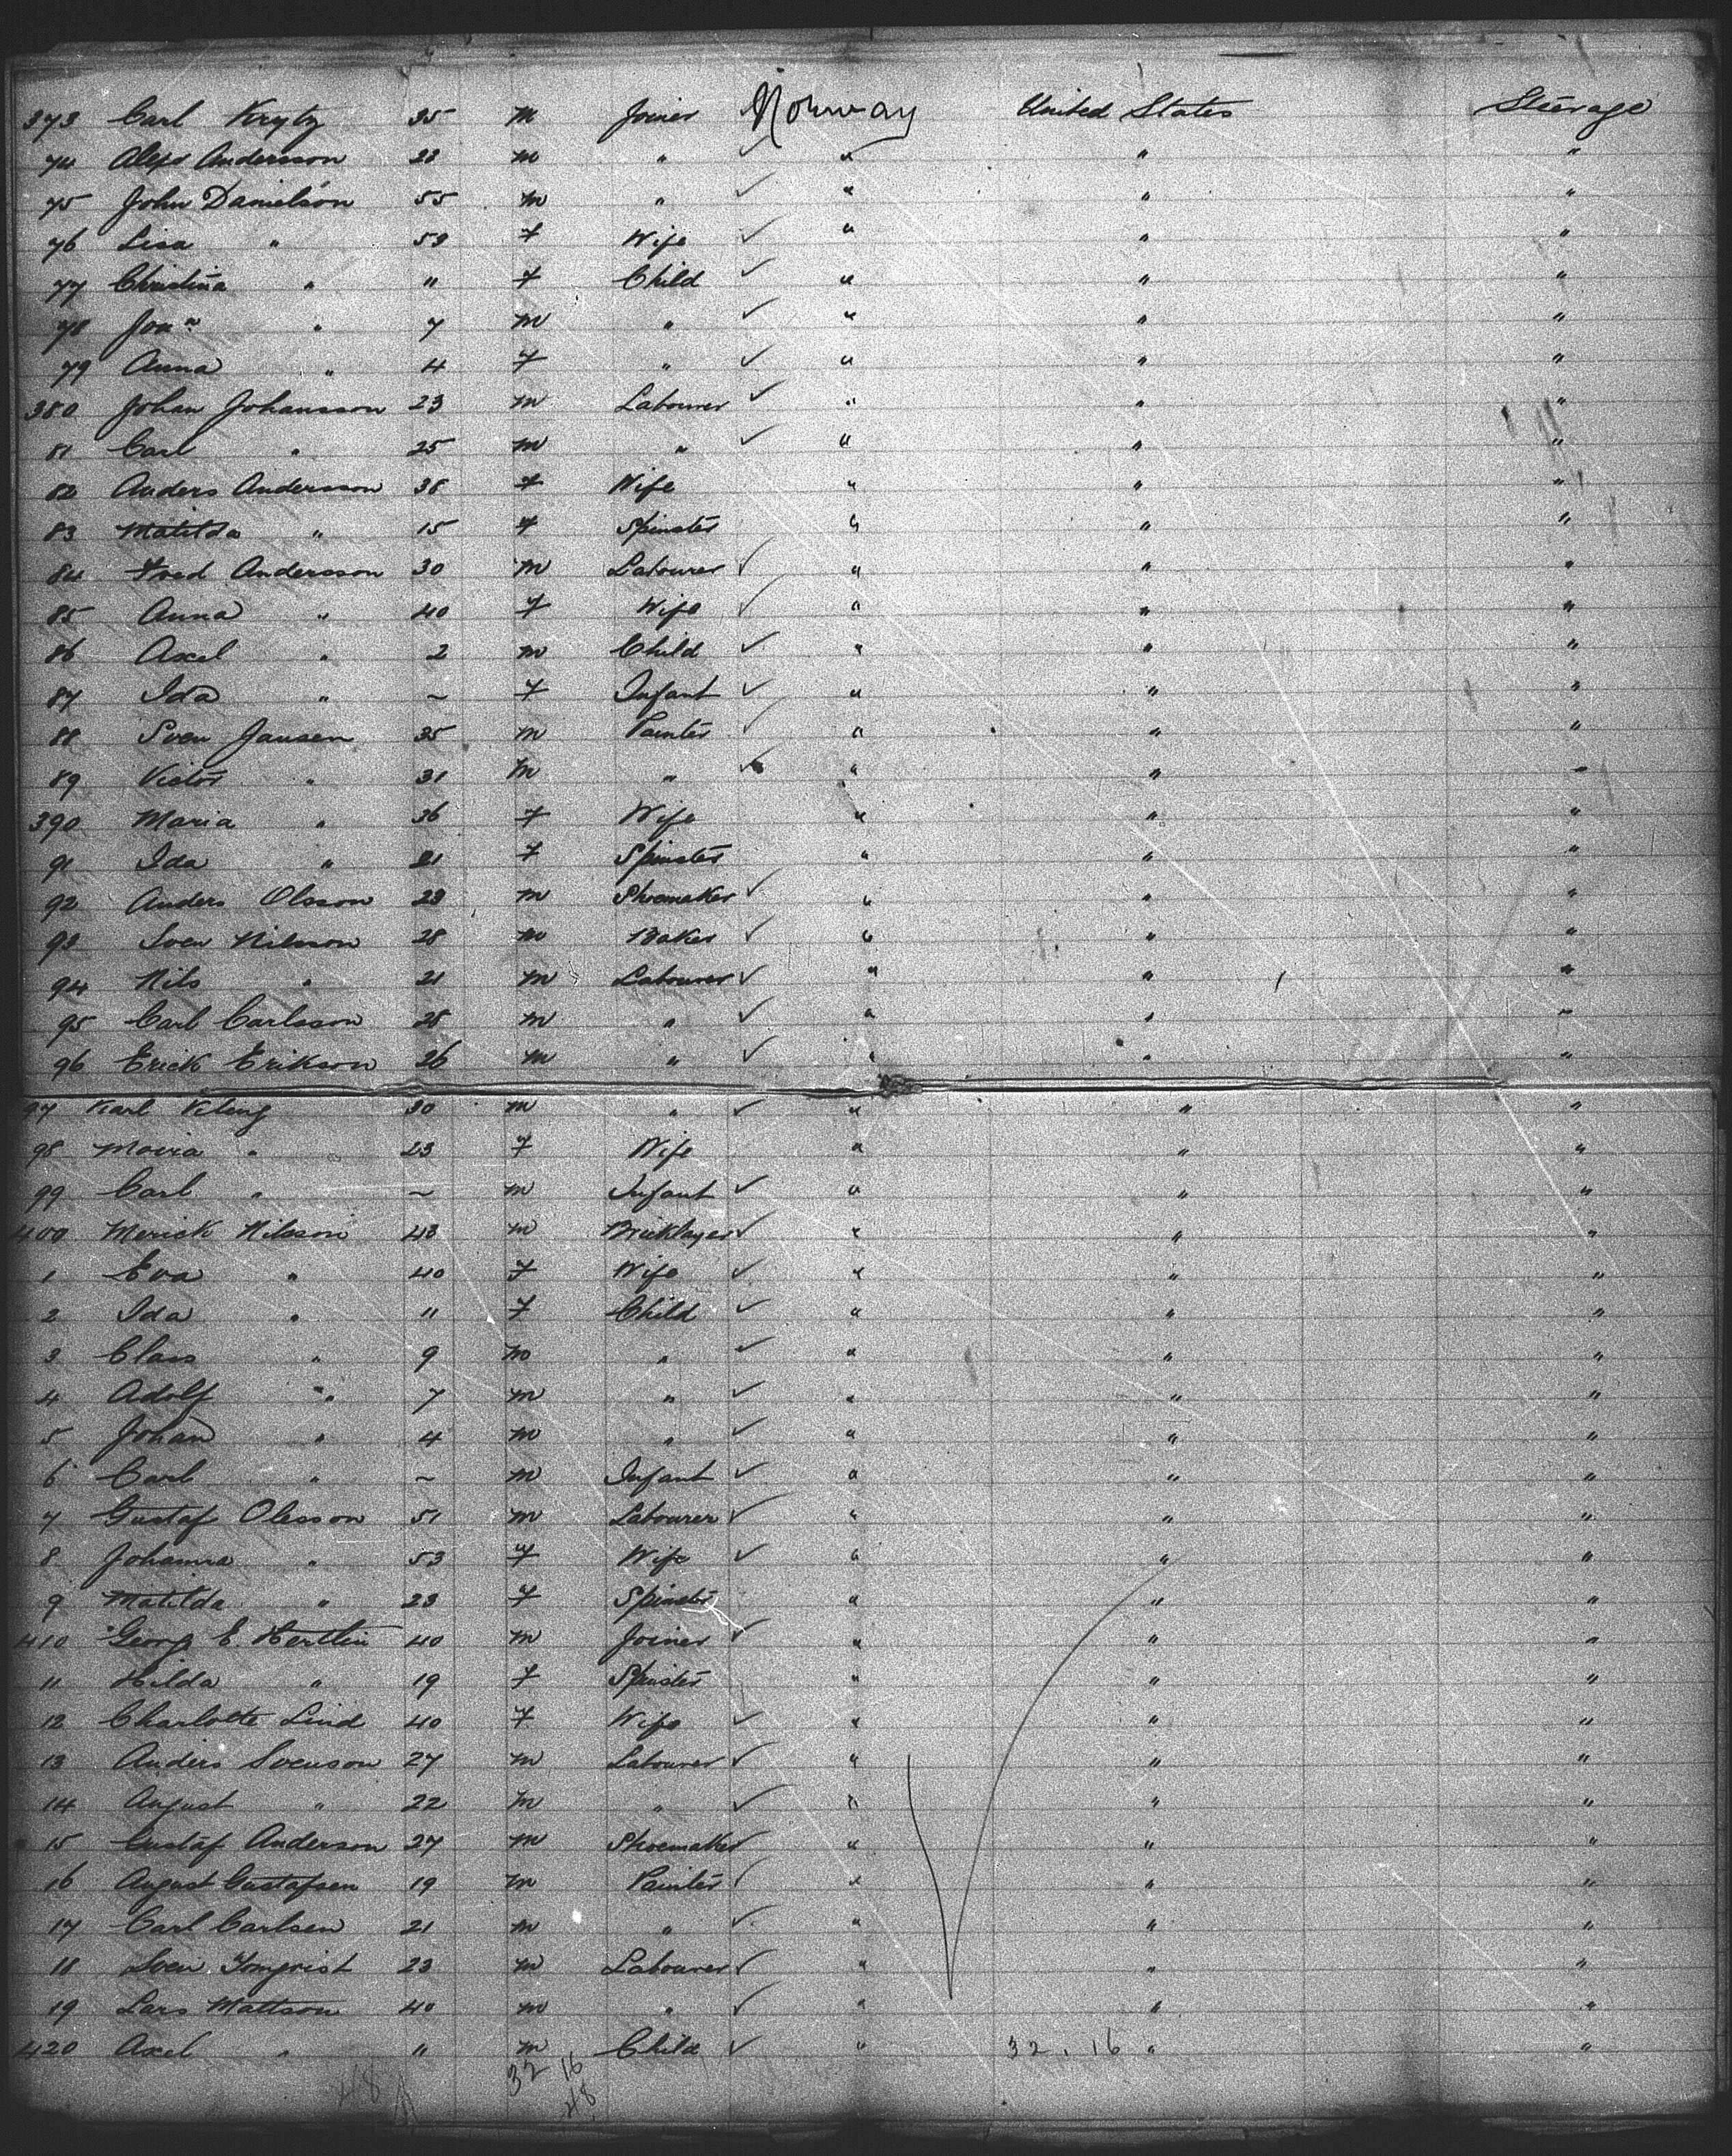 373 Carl Kryty 35 m Joiner Norway United States Steerage
74 Alexr Andersson 23 m " " " "
75 John Danielson 55 m " " " "
76 Lisa " 59 f Wife " " "
77 Christina " 11 f Child " " "
78 Jon " 7 m " " " "
79 Anna " 4 f " " " "
380 Johan Johansson 23 m Labourer " " "
81 Carl " 25 m " " " "
82 Anders Andersson 38 f Wife " " "
83 Matilda " 15 f Spinster " " "
84 Fred Andersson 30 m Labourer " " "
85 Anna " 40 f Wife " " "
86 Axel " 2 m Child " " "
87 Ida " ~ f Infant " " "
88 Sven Jansen 35 m Painter " " "
89 Victor " 31 m " " " "
390 Maria " 36 f Wife " " "
91 Ida " 21 f Spinster " " "
92 Anders Olsson 23 m Shoemaker " " "
93 Sven Nilsson 28 m Baker " " "
94 Nils " 21 m Labourer " " "
95 Carl Carlsson 28 m " " " "
96 Erick Erikson 26 m " " " "
97 Karl 30 m " " " "
98 " 23 f Wife " " "
99 Carl " ~ m Infant " " "
400 Merick Nilsson 43 m Bricklayer " " "
1 Eva " 40 f Wife " " "
2 Ida " 11 f Child " " "
3 Claes " 9 m " " " "
4 Adolf " 7 m " " " "
5 Johan " 4 m " " " "
6 Carl " ~ m Infant " " "
7 Gustaf Olesson 51 m Labourer " " "
8 Johanna " 53 f Wife " " "
9 Matilda " 23 f Spinster " " "
410 Georg E. Hertlin 40 m Joiner " " "
11 Hilda " 19 f Spinster " " "
12 Charlotte Lind 40 f Wife " " "
13 Anders Svenson 27 m Labourer " " "
14 August " 22 m " " " "
15 Gustaf Anderson 27 m Shoemaker " " "
16 August Gustafsen 19 m Painter " " "
17 Carl Carlsen 21 m " " " "
18 Sven 23 m Labourer " " "
19 Lars Mattson 40 m " " " "
420 Axel " 11 m Child " 32 . 16 " "
32 16
48 48